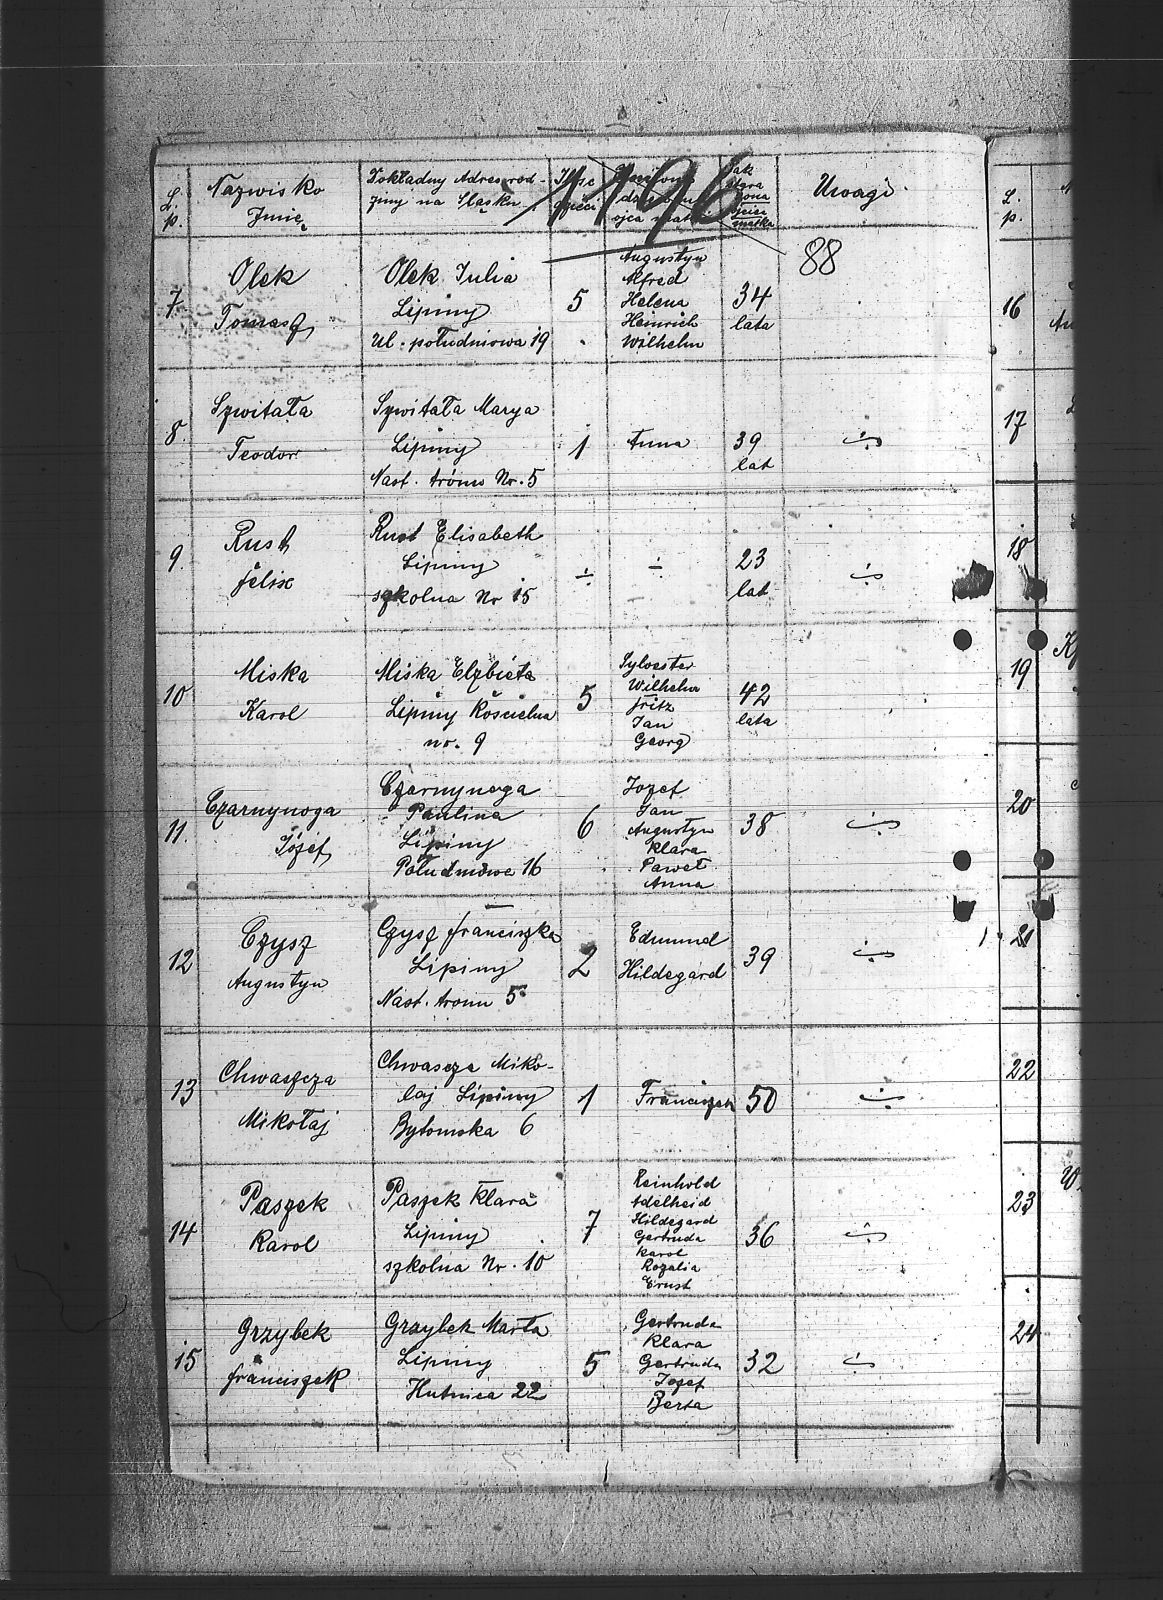 L. p.
Nazwisko
Imię
Dokładny Adres rod-
ziny na Śląsku
1196
Uwagi
88
7
Olek
Tomasz
Olek Julia
Lipiny
Ul. południowa 19
5
Augustyn
Alfred
Helena
Heinrich
Wilhelm
34
lata
8.
Szwitała
Teodor
Szwitała Marya
Lipiny
Nast. tronu Nr. 5
1
Anna
39
lat
9
Rust
Felix
Rust Elisabeth
Lipiny
szkolna Nr 15
÷
÷
23
lat
10
Miska
Karol
Miska Elzbieta
Lipiny Kościelna
no. 9
5
Sylvester
Wilhelm
Fritz
Jan
Georg
42
lata
11.
Czarnynoga
Józef
Czarnynoga
Paulina
Lipiny
Południowe 16
6
Jozef
Jan
Augustyn
Klara
Paweł
Anna
38
12
Czysz
Augustyn
Czysz Franciszka
Lipiny
Nast. tronu 5
2
Edmund
Hildegard
39
13
Chwaszcza
Mikołaj
Chwascza Miko-
laj Lipiny
Bytomska 6
1
Franciszek
50
14
Paszek
Karol
Paszek Klara
Lipiny
szkolna Nr. 10
7
Reinhold
Adelheid
Hildegard
Gertruda
Karol
Rozalia
Ernst
36
15
Grzybek
Franciszek
Grzybek Marta
Lipiny
Hutnica 22
5
Gertruda
Klara
Gertruda
Jozef
Berta
32
L.
p.
16
17
18
19
20
21
22
23
24